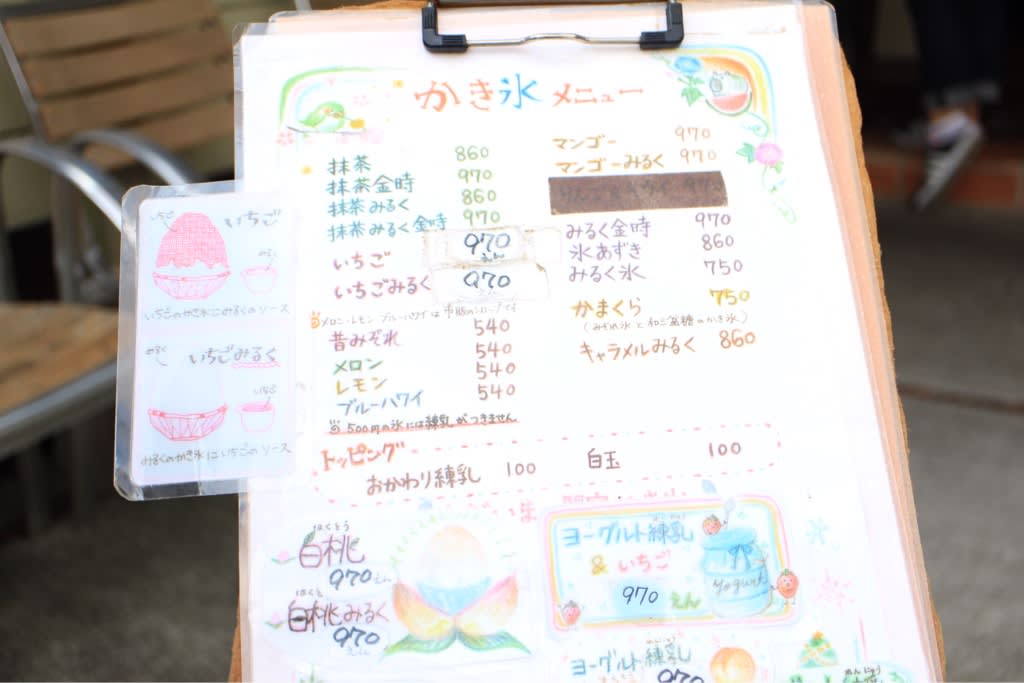 かき氷 メニュー
抹茶 860
抹茶金時 970
抹茶みるく 860
抹茶みるく金時 970
いちご 970えん
いちごみるく 970えん
メロン・レモン ブルーハワイは市販のシロップです
昔みぞれ 540
メロン 540
レモン 540
ブルーハワイ 540
500円の氷には練乳がつきません
マンゴー 970
マンゴーみるく 970
みるく金時 970
氷あずき 860
みるく氷 750
かまくら 750
(みぞれ氷と和三盆糖のかき氷)
キャラメルみるく 860
トッピング
おかわり練乳 100
白玉 100
いちご
いちご
みるく
いちごのかき氷にみるくのソース
みるく
いちごみるく
いちご
みるくのかき氷にいちごのソース
はくとう
白桃
970えん
はくとう
白桃みるく
970えん
ヨーグルト練乳
&いちご
970えん
Yogurt
ヨーグルト練乳
970